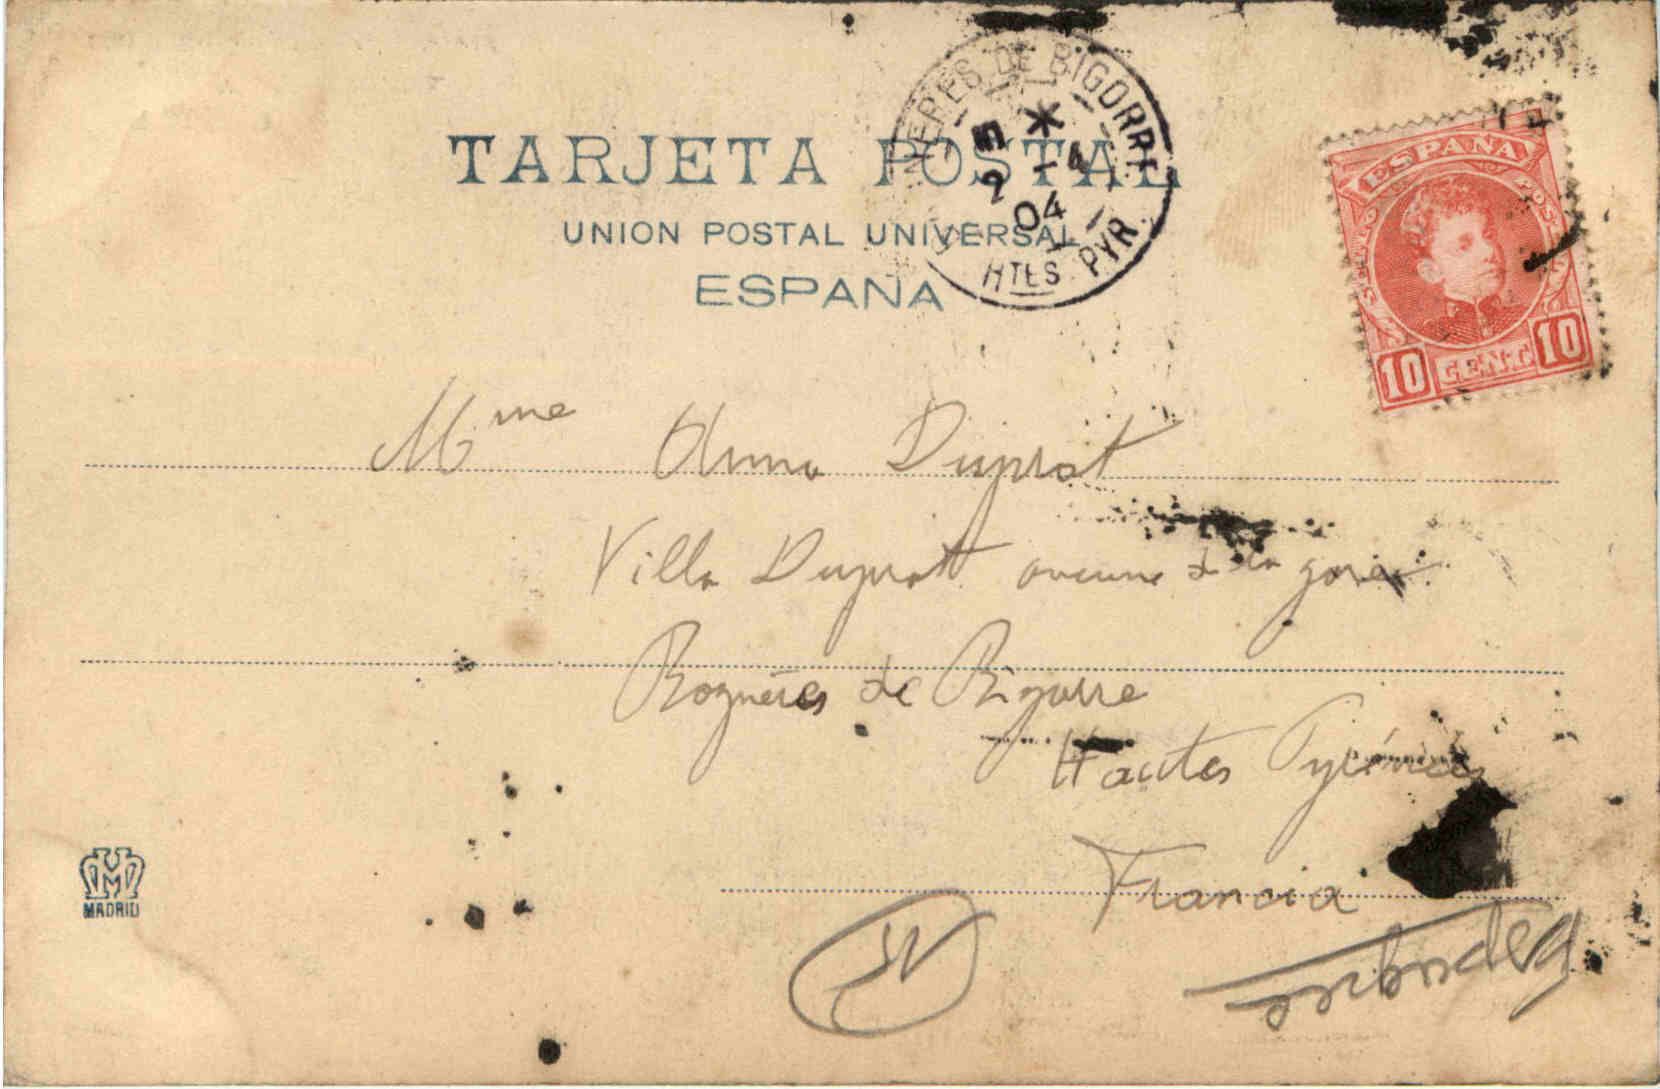 TARJETA POSTAL
UNION POSTAL UNIVERSAL
ESPAÑA
NÈRES DE BIGORRE
2 E
04
HTES PYR.
ESPAÑA
10 CENT. 10
Mme Anna Duprat
Villa Duprat avenue de la gare
Bagnères de Bigorre
Hautes Pyrénées
Francia
MADRID